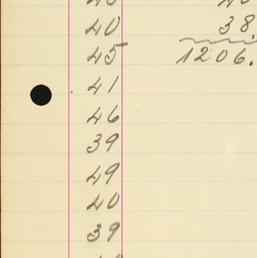 40 38.
45 1206.
41
46
39
49
40
39